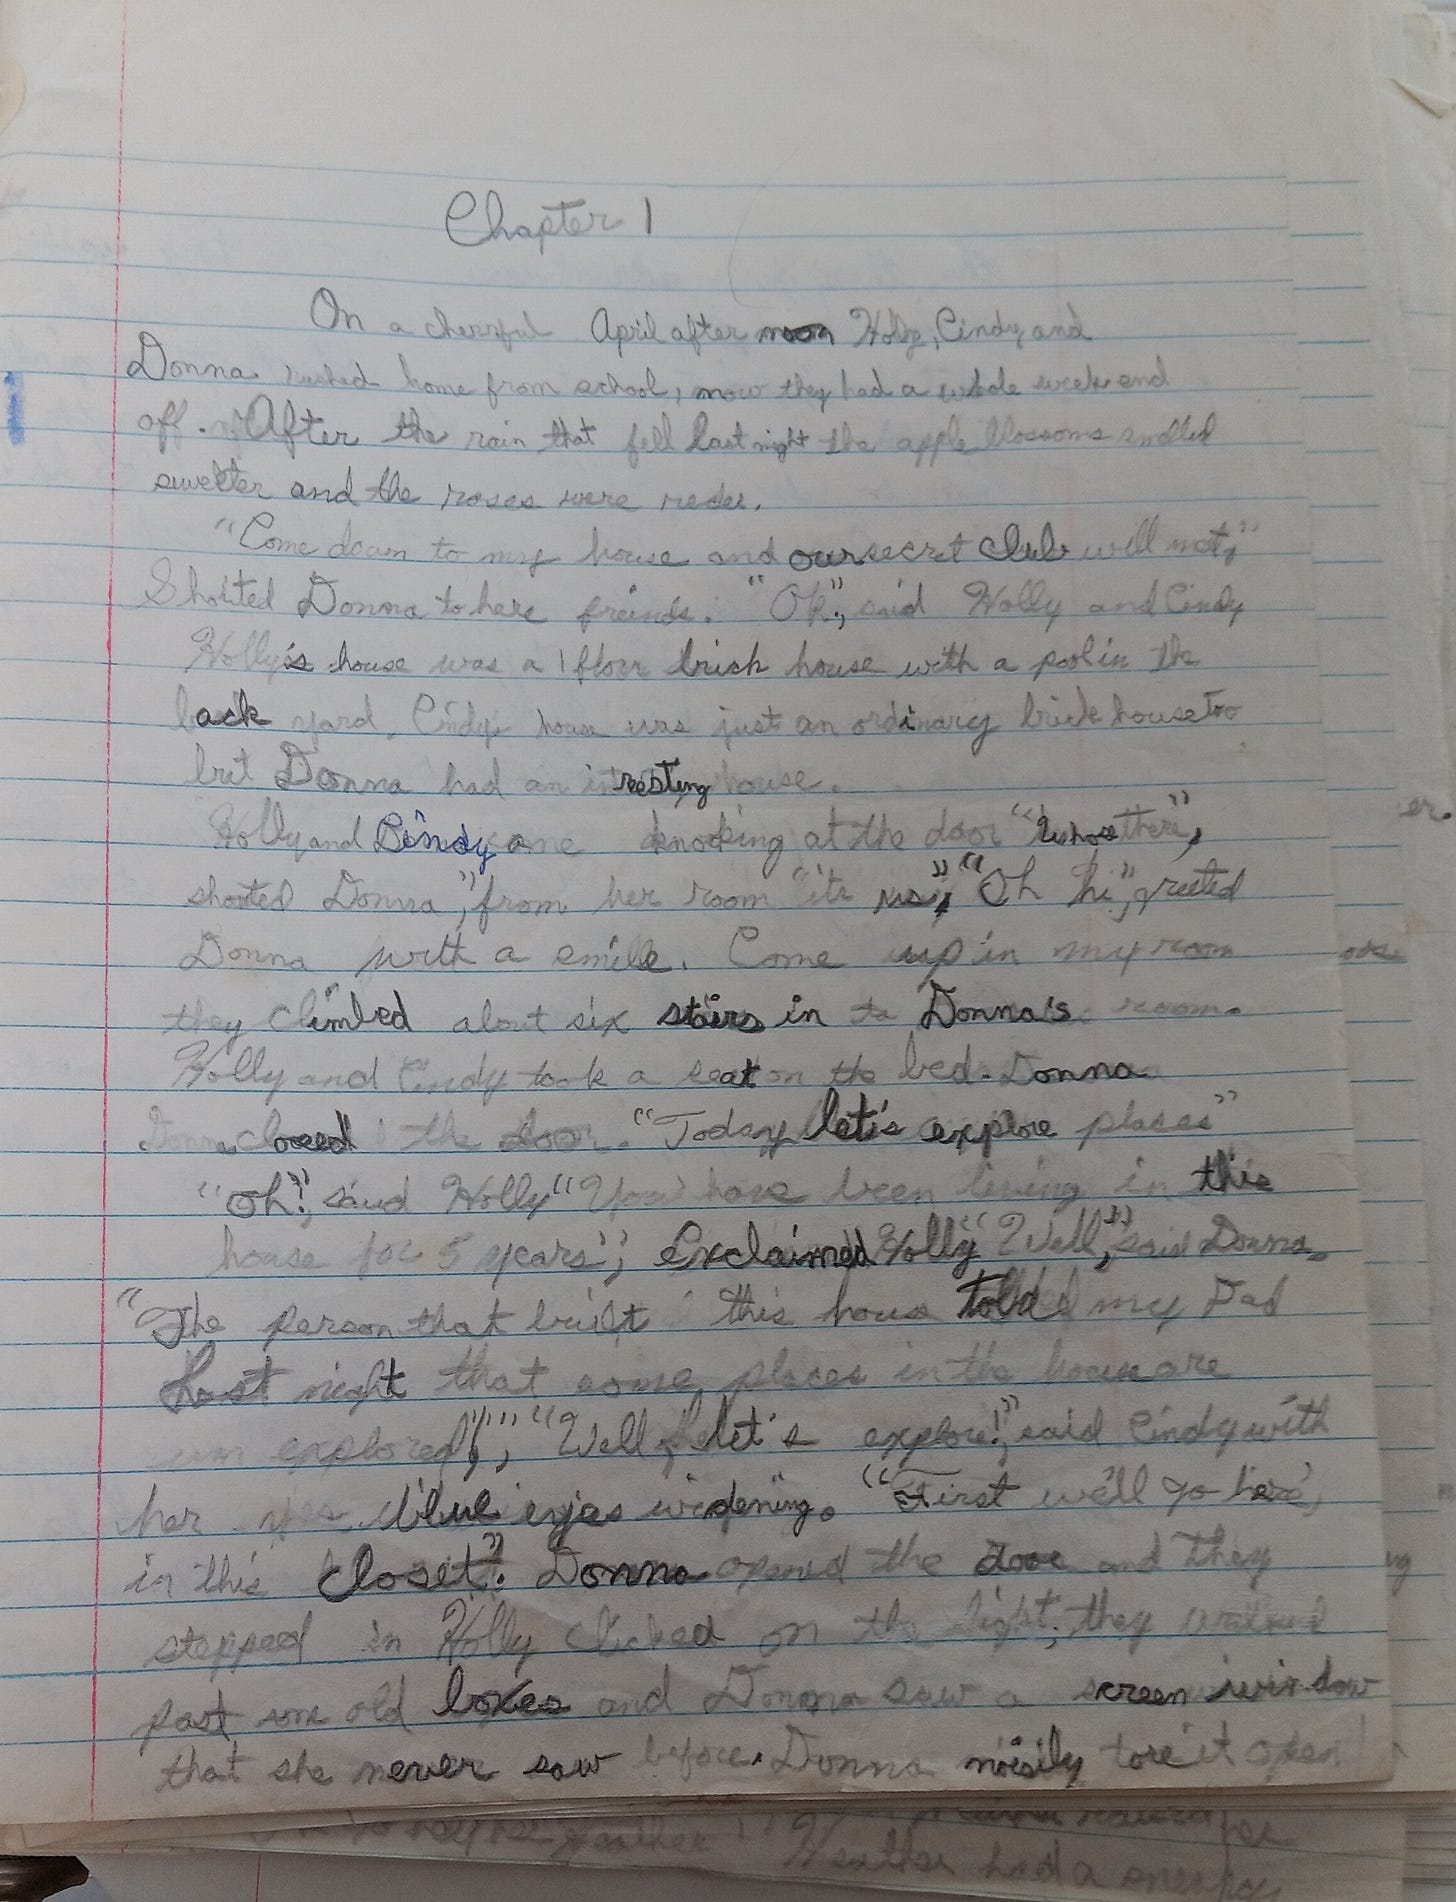 Chapter 1
On a cheerful April after noon Holly, Cindy and
Donna rushed home from school, now they had a whole week end
off. After the rain that fell last night the apple blossoms smelled
sweeter and the roses were reder.
"Come down to my house and our secret club will met,"
Shouted Donna to here freinds. "Ok", said Holly and Cindy
Holly's house was a 1 floor brick house with a pool in the
back yard. Cindy's house was just an ordinary brick house too
but Donna had an intresting house.
Holly and Cindy came knocking at the door "whose there",
shouted Donna", from her room "its us", "Oh hi", greeted
Donna with a smile. Come up in my room
they climbed about six stairs in to Donna's room.
Holly and Cindy took a seat on the bed. Donna
Donna closed the door. "Today let's explore places"
"Oh!", said Holly "You have been living in this
house for 5 years", Exclaimed Holly "Well", said Donna.
"The person that built this house told my Dad
Last night that some places in the house are
un explored!", "Well let's explore!", said Cindy with
her blue eyes widening. "First we'll go here,
in this closet". Donna opened the door and they
stepped in Holly clicked on the light, they walked
past some old boxes and Donna saw a screen window
that she never saw before. Donna noisily tore it open!
er.
ng
Heather had a